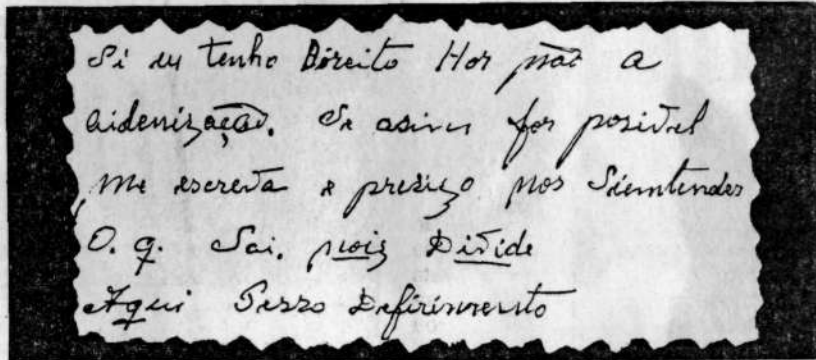 Si eu tenho Direito Hor não a
aidenização. Se asim for posivel
me escreva e presizo nos Siemtender
O. q. Sai. nois Divide
Aqui Pesso Defirimento